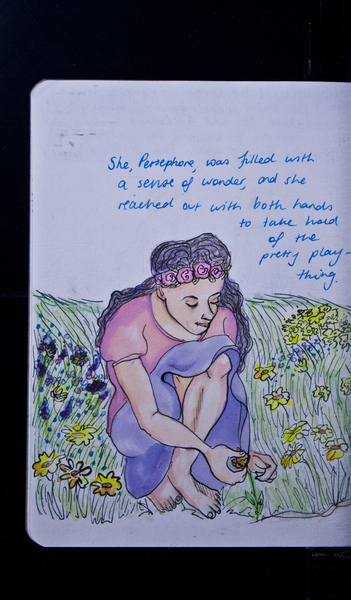 She, Persephone, was filled with
a sense of wonder, and she
reached out with both hands
to take hold
of the
pretty play-
thing.